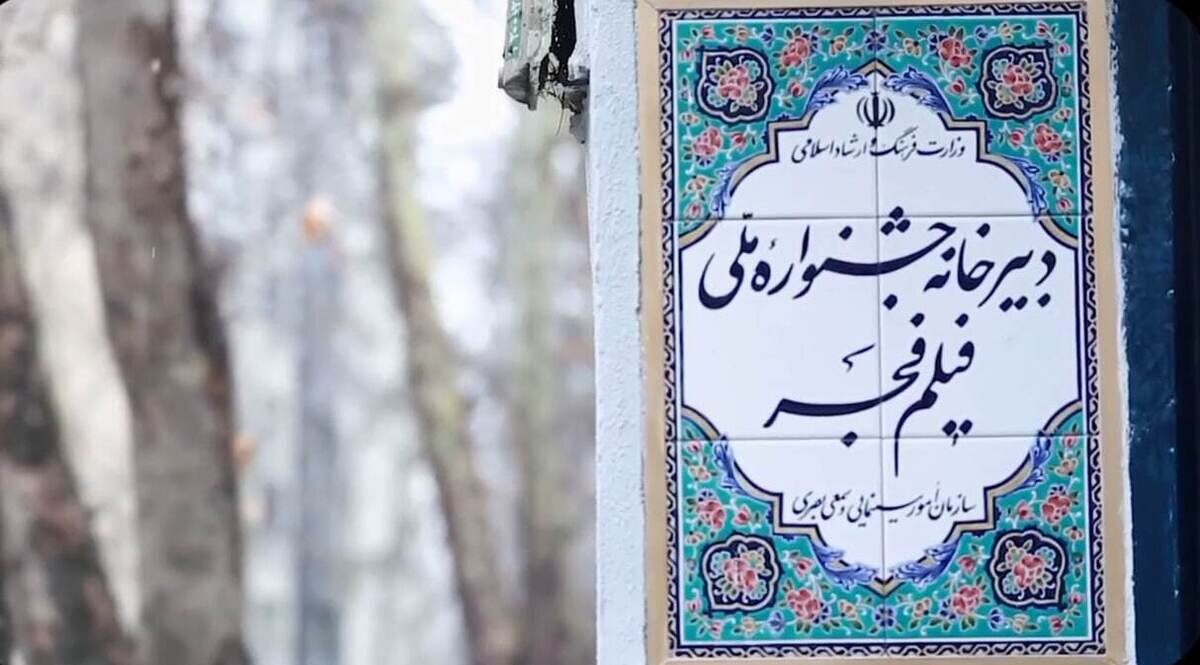 وزارت فرهنگ و ارشاد اسلامی
دبیرخانه جشنواره ملّی
فیلم فجر
سازمان اُمور سینمایی و سمعی بصری